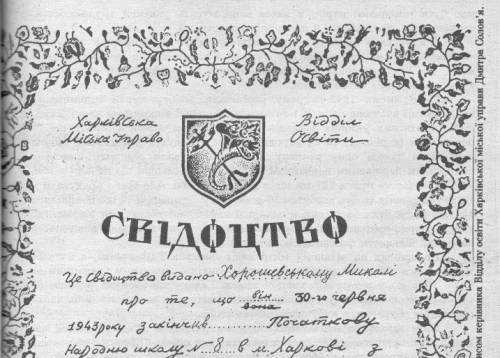 Харківська
Міська Управа
Відділ
Освіти
СВІДОЦТВО
Це Свідоцтво видано Хорошевському Миколі
про те, що він вона 30-го червня
1943 року закінчив Початкову
Народню школу № 8 в м. Харкові з
сом керівника Відділу освіти Харківської міської управи Дмитра Солов'я.